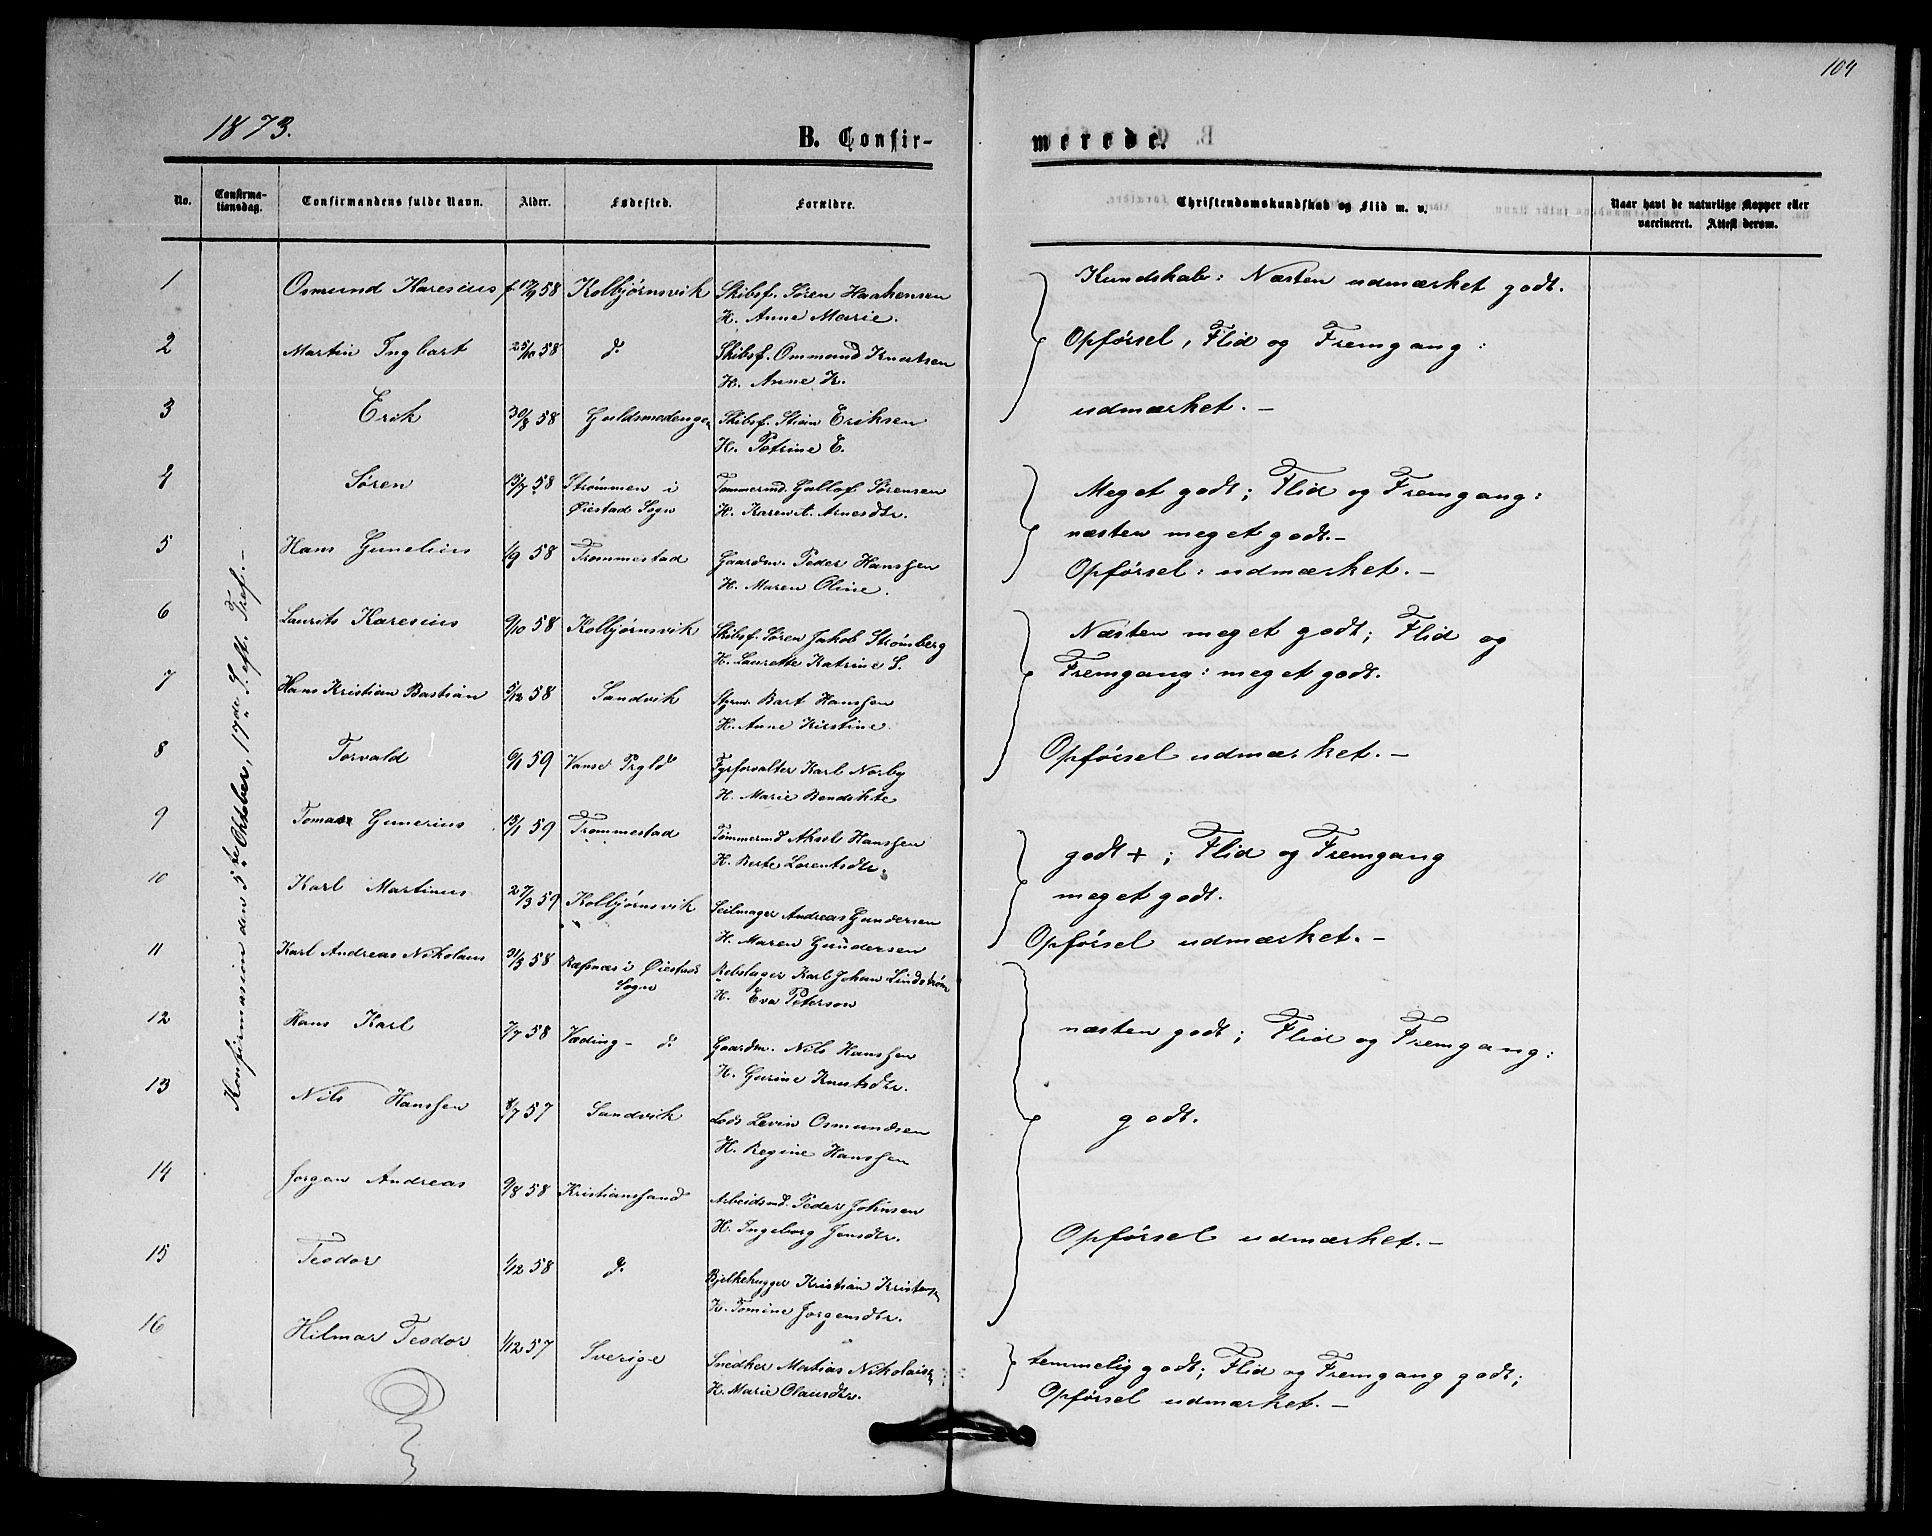 104
1873.
B. Confirmerede.
No.
Confirmationsdag.
Confirmandens fulde Navn.
Alder.
Fødested.
Forældre.
Christendomskundskab og Flid m. v.
Naar havt de naturlige Kopper eller
vaccineret. Attest derom.
Konfirmasion den 5te Oktober, 17de S. eft. Tref. –
1 Osmund Karesius f. 17/9 58 Kolbjørnsvik Skibsf. Søren Haakensen
H. Anne Marie.
2 Martin Ingbart 25/10 58 d. Skibsf. Ommund Knutsen
H. Anne K.
3 Erik 30/8 58 Guldsmedengen Skibsf. Stian Eriksen
H. Petrine E.
Kundskab: Næsten udmærket godt.
Opførsel, Flid og Fremgang:
udmærket. –
4 Søren 13/7 58 Strømmen i Tømmermd. Gullof Sørensen
Øiestad Sogn H. Karen A. Arnesdtr.
5 Hans Gunelius 1/9 58 Trommestad Gaardm. Peder Hanssen
H. Maren Oline.
Meget godt; Flid og Fremgang:
næsten meget godt. –
Opførsel: udmærket. –
6 Laurits Karesius 9/10 58 Kolbjørnsvik Skibsf. Søren Jakob Strømberg
H. Laurette Katrine S.
7 Hans Kristian Bastian 5/12 58 Sandvik Styrm. Bart Hanssen
H. Anne Kirstine.
8 Torvald 6/1 59 Vanse Prgld Fyrforvalter Karl Norby
H. Marie Bendikte
Næsten meget godt; Flid og
Fremgang: meget godt.
Opførsel udmærket. –
9 Tomas Gunerius 13/1 59 Trommestad Tømmermd Aksel Hanssen
H. Berte Lorentsdtr.
10 Karl Martinus 27/3 59 Kolbjørnsvik Seilmager Andreas Gundersen
H. Maren Gundersen
godt + ; Flid og Fremgang
meget godt.
Opførsel udmærket. –
11 Karl Andreas Nikolaus 31/3 58 Ræsnæs i Øiestad Rebslager Karl Johan Lindstrøm
Sogn H. Eva Peterson
12 Hans Karl 7/7 58 Væding – d. Gaardm. Nils Hanssen
H. Gurine Knutsdtr.
13 Nils Hanssen 8/7 57 Sandvik Lods Levin Osmundsen
H. Regine Hanssen
14 Jorgen Andreas 9/8 58 Kristianssand Arbeidsmd. Peder Johnsen
H. Ingeborg Jensdtr.
15 Teodor 1/12 58 d. Bjelkehugger Kristian Kristensen
H. Tomine Jorgensdtr.
næsten godt; Flid og Fremgang:
godt.
Opførsel udmærket. –
16 Hilmar Teodor 1/12 57 Sverige Snedker Matias Nikolaisen
H. Marie Olausdtr.
temmelig godt; Flid og Fremgang godt;
Opførsel udmærket. –